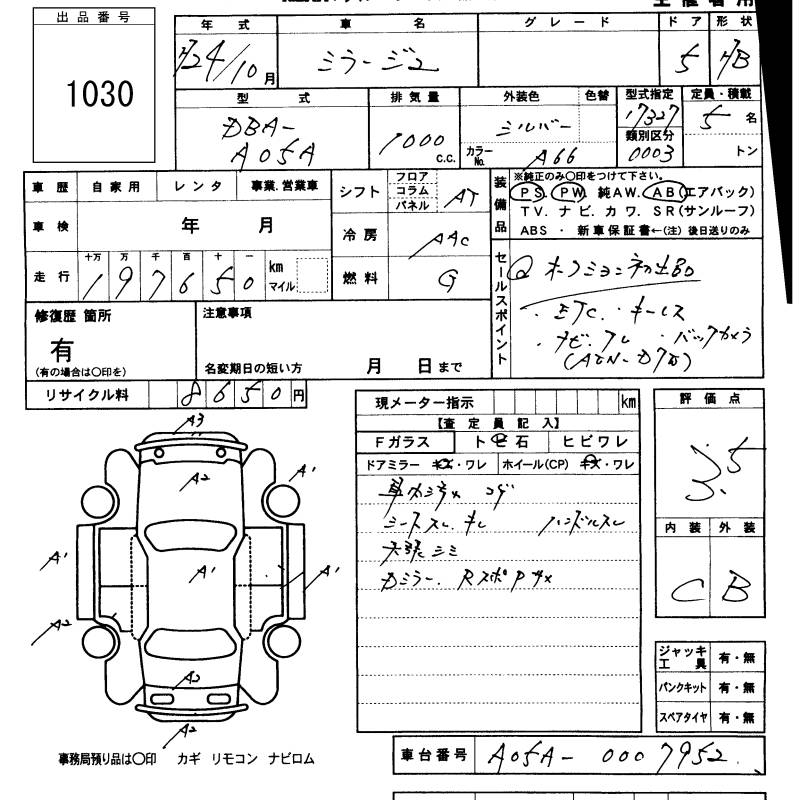 出品番号
1030
年式 車名 グレード ドア 形状
H24/10月 ミラージュ 5 H/B
型式 排気量 外装色 色替 型式指定 定員・積載
DBA-A05A 1000 C.C. シルバー 17327 5 名
カラーNo. A66 類別区分 0003 トン
車歴 自家用 レンタ 事業.営業車
車検 年 月
走行 十万 万 千 百 十 一
197650 km マイル
シフト フロア コラム パネル AT
冷房 AAC
燃料 G
装備品
※純正のみ○印をつけて下さい。
PS. PW. 純AW. AB(エアバック)
TV. ナビ. カワ. SR(サンルーフ)
ABS ・ 新車保証書←(注) 後日送りのみ
セールスポイント
ETC. キーレス
ナビ. バックカメラ
修復歴 箇所
有
(有の場合は○印を)
注意事項
名変期日の短い方 月 日まで
リサイクル料 8650円
現メーター指示 km
【査定員記入】
Fガラス トビ石 ヒビワレ
ドアミラー キズ・ワレ ホイール(CP) キズ・ワレ
シートスレ. ハンドルスレ
天張シミ
評価点
3.5
内装 外装
C B
ジャッキ工具 有・無
パンクキット 有・無
スペアタイヤ 有・無
A3
A2
A1
A1
A1
A1
A2
A2
A2
A2
事務局預り品は○印 カギ リモコン ナビロム
車台番号 A05A-0007952